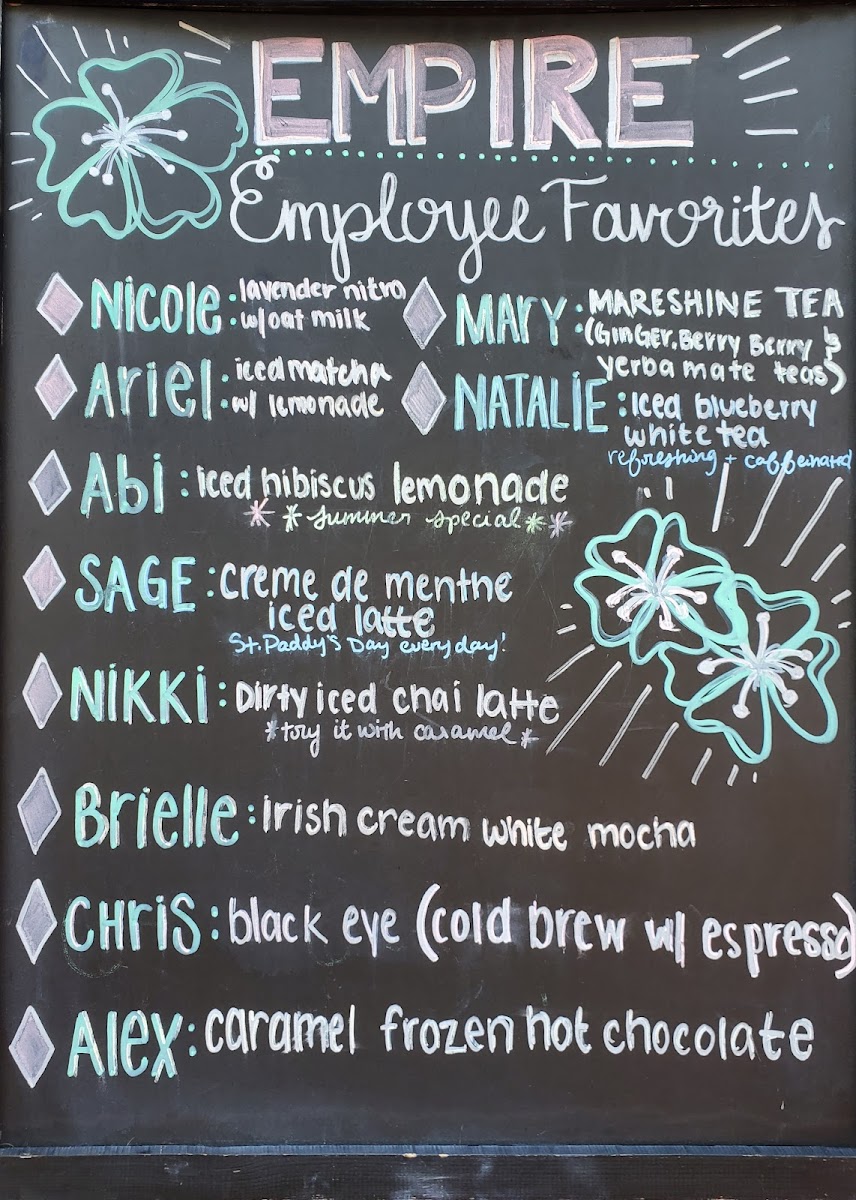 EMPIRE
Employee Favorites
Nicole: lavender nitro
: w/oat milk
Ariel: iced matcha
: w/ lemonade
Abi: iced hibiscus lemonade
* *summer special* *
SAGE: creme de menthe
iced latte
St. Paddy's Day everyday!
NiKKi: Dirty iced chai latte
*try it with caramel*
Brielle: irish cream white mocha
CHriS: black eye (cold brew w/ espresso)
Alex: caramel frozen hot chocolate
MArY: MARESHINE TEA
: (GinGER, Berry Berry &
yerba mate teas)
NATALiE: Iced blueberry
white tea
refreshing + caffeinated